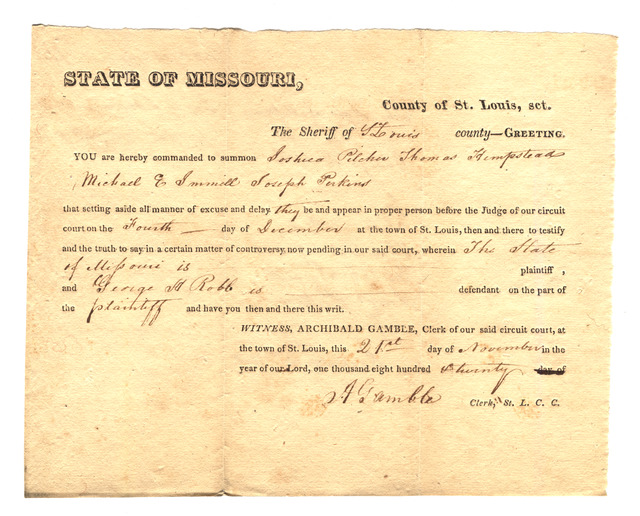 STATE OF MISSOURI,
County of St. Louis, sct.
The Sheriff of St Louis county—GREETING.
YOU are hereby commanded to summon Joshua Pilcher Thomas Hempstead
Michael E Immell Joseph Perkins
that setting aside all manner of excuse and delay they be and appear in proper person before the Judge of our circuit
court on the Fourth day of December at the town of St. Louis, then and there to testify
and the truth to say in a certain matter of controversy now pending in our said court, wherein The State
of Missouri is plaintiff,
and George H Robb is defendant on the part of
the plaintiff and have you then and there this writ.
WITNESS, ARCHIBALD GAMBLE, Clerk of our said circuit court, at
the town of St. Louis, this 21st day of November in the
year of our Lord, one thousand eight hundred & twenty day of
A Gamble Clerk, St. L. C. C.